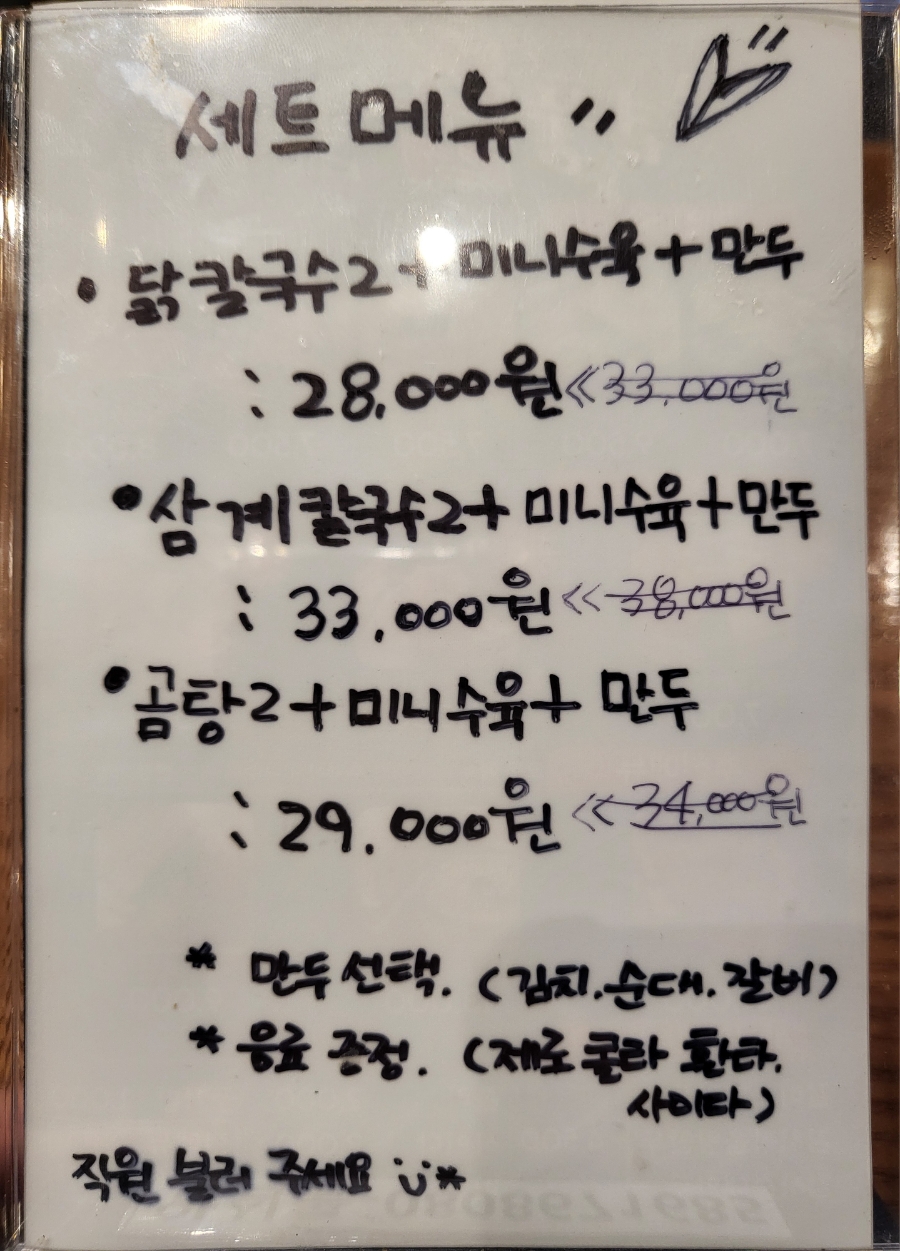 세트메뉴 〃
• 닭칼국수2+미니수육+만두
: 28,000원 << 33,000원
• 삼계칼국수2+미니수육+만두
: 33,000원 << 38,000원
• 곰탕2+미니수육+만두
: 29,000원 << 34,000원
* 만두선택. (김치.순대.갈비)
* 음료 증정. (제로콜라 환타.
사이다)
직원 불러 주세요 ü*